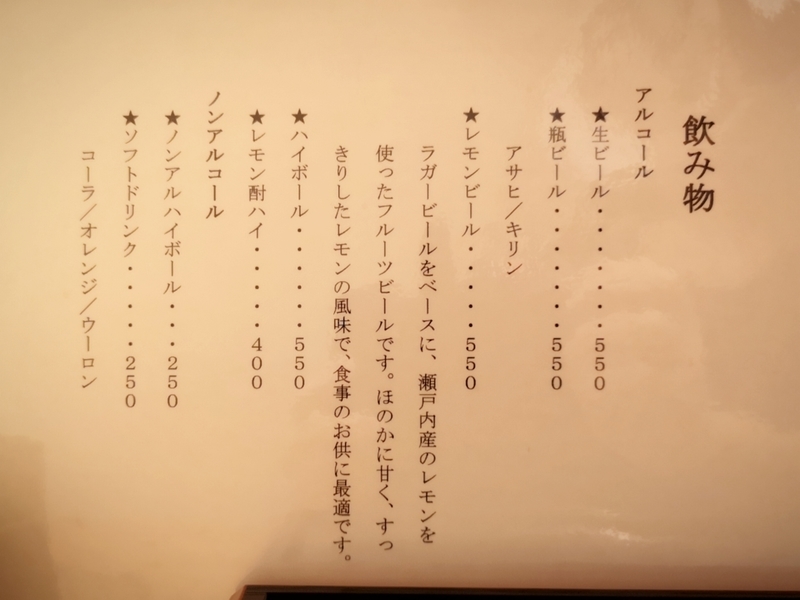 飲み物
アルコール
★生ビール・・・・・・・550
★瓶ビール・・・・・・・550
アサヒ/キリン
★レモンビール・・・・・・550
ラガービールをベースに、瀬戸内産のレモンを
使ったフルーツビールです。ほのかに甘く、すっ
きりしたレモンの風味で、食事のお供に最適です。
★ハイボール・・・・・・550
★レモン酎ハイ・・・・・400
ノンアルコール
★ノンアルハイボール・・・250
★ソフトドリンク・・・・・250
コーラ/オレンジ/ウーロン